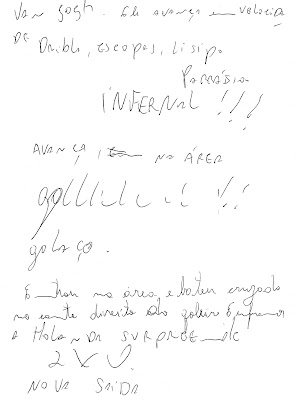 Van gogh. Ele avança em velocida
DE
Dribla, escapa,
INFERNAL !!!
AVANÇA, NA ÁREA
gollllll !!
golaço.
Entrou na área, e bateu cruzado
no canto direito do goleiro
a HOLANDA SURPREENDE
2 X 0.
NOVA SAÍDA